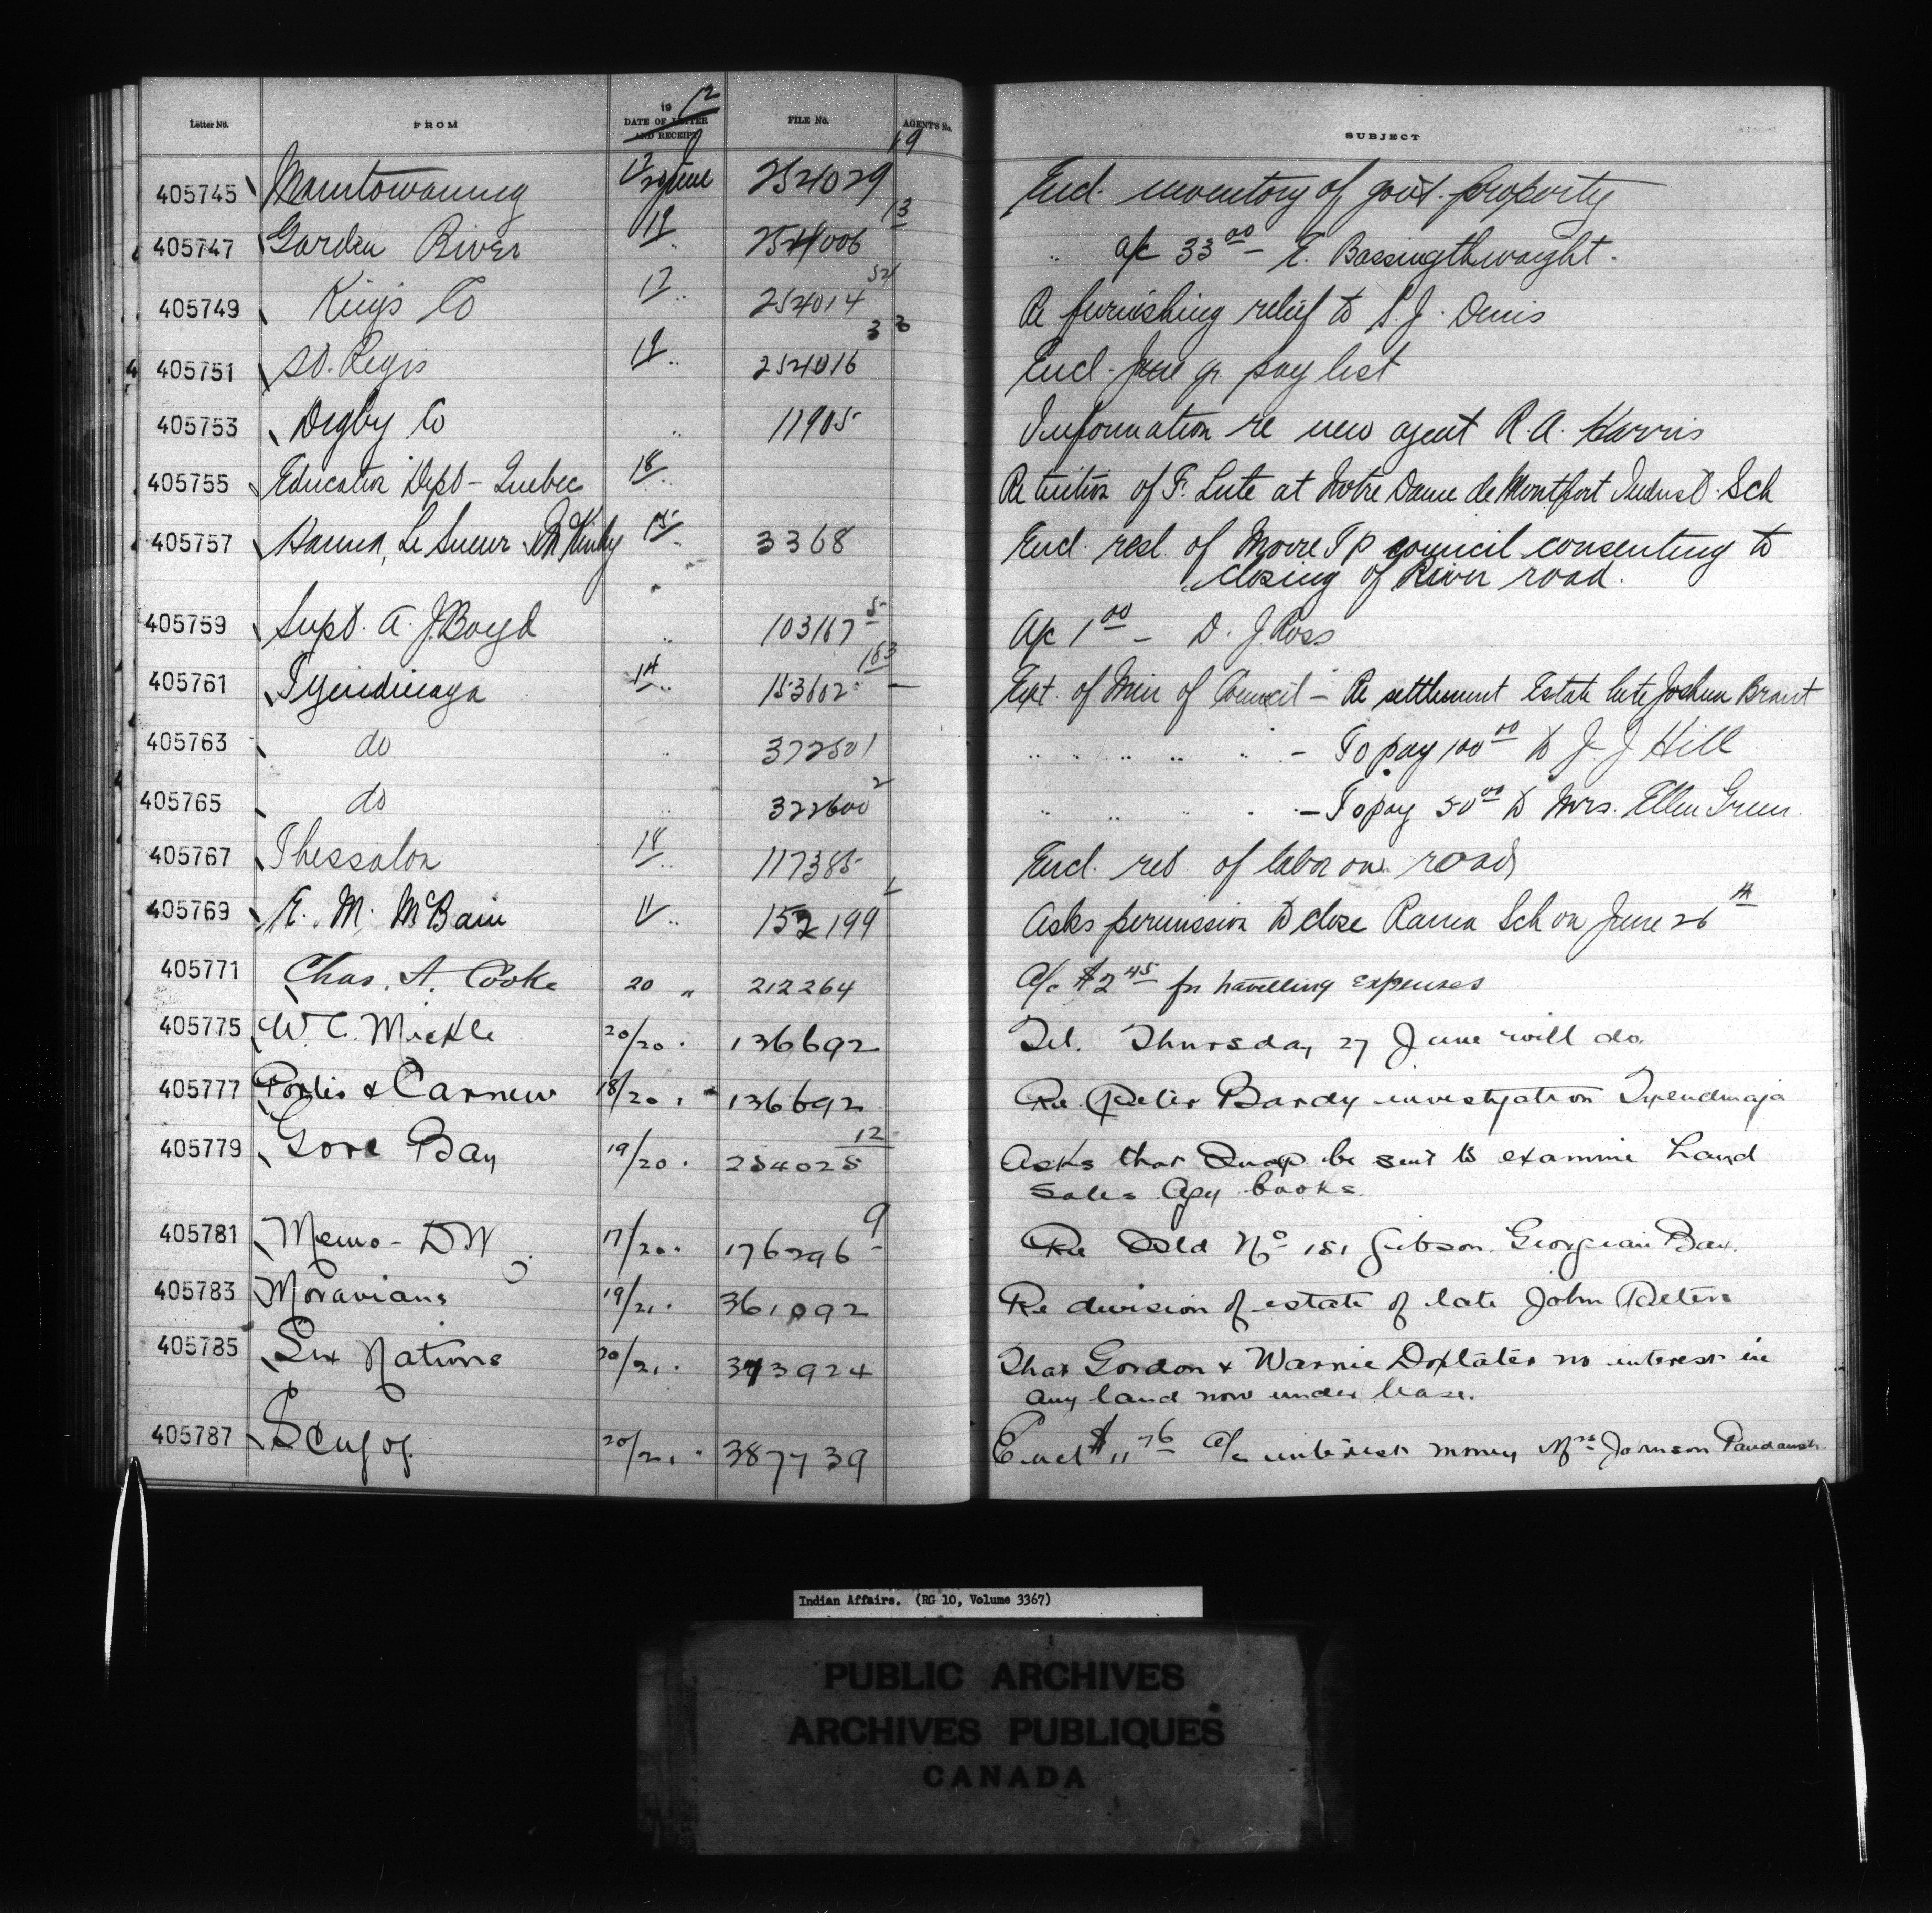 Letter No. FROM 19 12 DATE OF LETTER AND RECEIPT FILE No. AGENT'S No. SUBJECT
405745 Manitowaning 17/20 June 254029 19 Encl. inventory of gov't. property
405747 Garden River 19 " 254006 13 " a/c 33 00 - E. Bassingthwaight.
405749 Kings Co 17 " 254014 52 Re furnishing relief to S. J. Denis
405751 St. Regis 19 " 254016 33 Encl. June qr. pay list
405753 Digby Co " 11905 Information re new agent R. A. Harris
405755 Education Dept - Quebec 18 " Re tuition of F. Lute at Notre Dame de Montfort Indust. Sch
405757 Hanna, Le Sueur & McKinley 15 " 3368 Encl. resl. of Moore Tp council consenting to
closing of River road.
405759 Supt. A. J. Boyd " 103167 5 A/c 1 00 - D. J. Ross
405761 Tyendinaga 14 " 153602 183 Ext. of Min of Council - Re settlement Estate late Joshua Brant
405763 do " 372501 " " " " " - To pay 100 00 to J. J. Hill
405765 do " 322600 2 " " " " - To pay 50 00 to Mrs. Ellen Green
405767 Thessalon 18 " 117385 Encl. ret of labor on road
405769 E. M. McBain " 152199 Asks permission to close Rama Sch on June 26 th
405771 Chas. A. Cooke 20 " 212264 A/c $2 45 for travelling expenses
405775 W. C. Mickle 20/20 . 136692 Tel. Thursday 27 June will do.
405777 Porter & Carnew 18/20 . " 136692 Re Peter Bardy investigation Tyendinaga
405779 Gore Bay 19/20 . 254025 12 Asks that Insp. be sent to examine Land
Sales Agy books.
405781 Memo - DW 17/20 . 176296 9 Re Isld No 151 Gibson. Georgian Bay.
405783 Moravians 19/21 . 361092 Re division of estate of late John Peters
405785 Six Nations 20/21 . 373924 That Gordon & Warnie Doxtater no interest in
any land now under lease.
405787 Scugog. 20/21 " 387739 Encl $11 76 A/c interest money Mrs Johnson Paudaush
Indian Affairs. (RG 10, Volume 3367)
PUBLIC ARCHIVES
ARCHIVES PUBLIQUES
CANADA